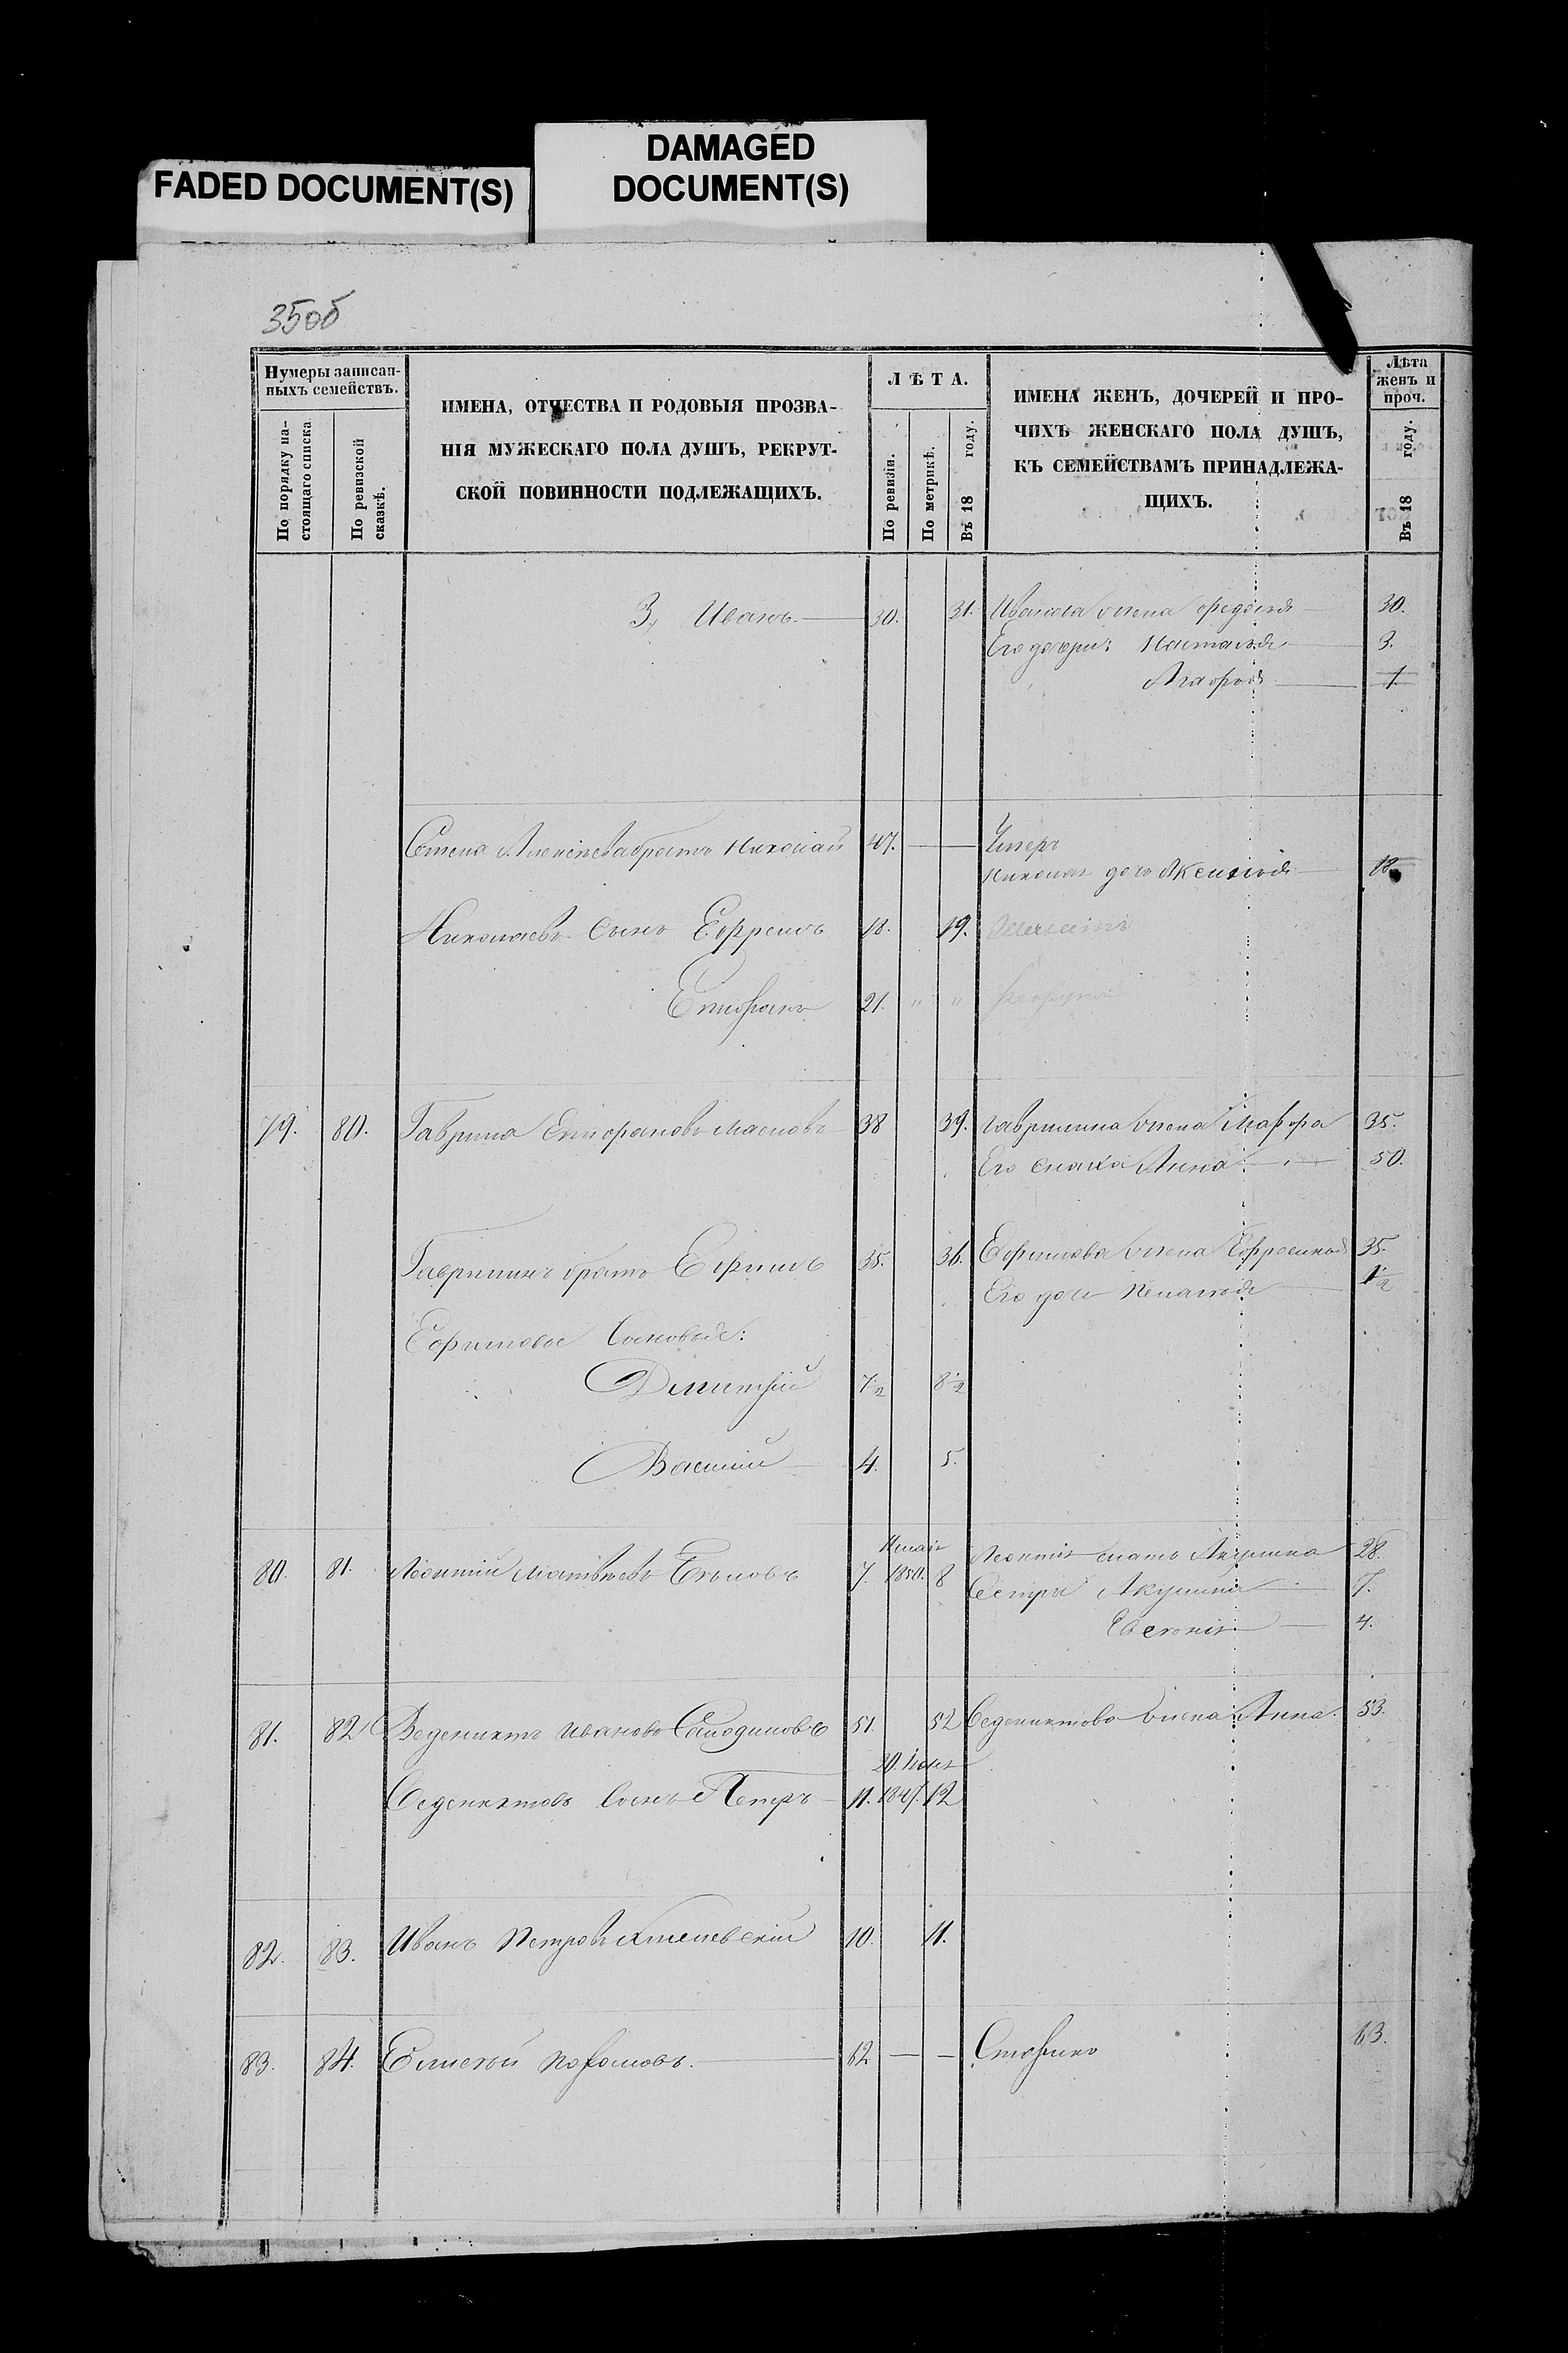 FADED DOCUMENT(S)
DAMAGED
DOCUMENT(S)
35об
Нумеры записан-
ныхъ семействъ.
По порядку на-
стоящаго списка
По ревизской
сказкѣ.
ИМЕНА, ОТЧЕСТВА И РОДОВЫЯ ПРОЗВА-
НІЯ МУЖЕСКАГО ПОЛА ДУШЪ, РЕКРУТ-
СКОЙ ПОВИННОСТИ ПОДЛЕЖАЩИХЪ.
ЛѢТА.
По ревизіи.
По метрикѣ.
Въ 18 году.
ИМЕНА ЖЕНЪ, ДОЧЕРЕЙ И ПРО-
ЧИХЪ ЖЕНСКАГО ПОЛА ДУШЪ,
КЪ СЕМЕЙСТВАМЪ ПРИНАДЛЕЖА-
ЩИХЪ.
Лѣта
женъ и
проч.
Въ 18 году.
3, Иванъ. 30. 31. Иванова жена Федосья 30.
Его дочери: Наталья 3.
Агафья 1
братъ Николай 47. — — Умеръ
дочь Аксинья 18
Николаевъ сынъ Ефремъ 18. 19.
Епифанъ 21. " "
79. 80. Гаврила Епифановъ Масловъ 38 39. Гаврилина жена Марфа 35.
Его сноха Анна 50.
Гаврилинъ братъ Ефимъ 35. 36. Ефимова жена Ефросинья 35.
Его дочь Пелагея 1/2
Ефимовы сыновья:
Дмитрій 7 1/2 8 1/2
Василій 4. 5.
80. 81. Леонтій Матвѣевъ 7. 1850. 8 мать Акулина 28.
Сестры Акулина 7.
4.
81. 82 Веденихтъ Ивановъ 51. 52 Веденихтова жена Анна. 53.
Веденихтовъ сынъ Петръ 11. 1847. 12
82. 83. Иванъ Петровъ 10. 11.
83. 84. Елисей 62 — — 63.